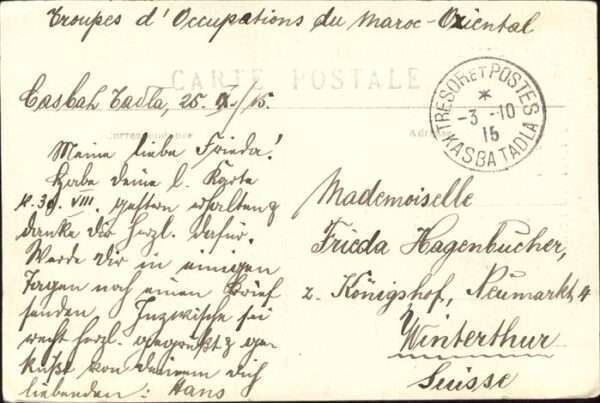 Troupes d'Occupations du Maroc-Oriental
CARTE POSTALE
Casbah Tadla, 25. X./15.
Correspondance
Adresse
TRESOR ET POSTES
*
-3 -10
15
KASBA TADLA
Meine liebe Frieda!
Habe deine l. Karte
v. 30. VIII. gestern erhalten &
danke dir herzl. dafür.
Werde dir in einigen
Tagen noch einen Brief
senden. Inzwischen sei
recht herzl. gegrüßt & ge-
küßt von deinem dich
liebenden: Hans
Mademoiselle
Frieda Hagenbucher,
z. Königshof, Neumarkt 4
Winterthur
Suisse